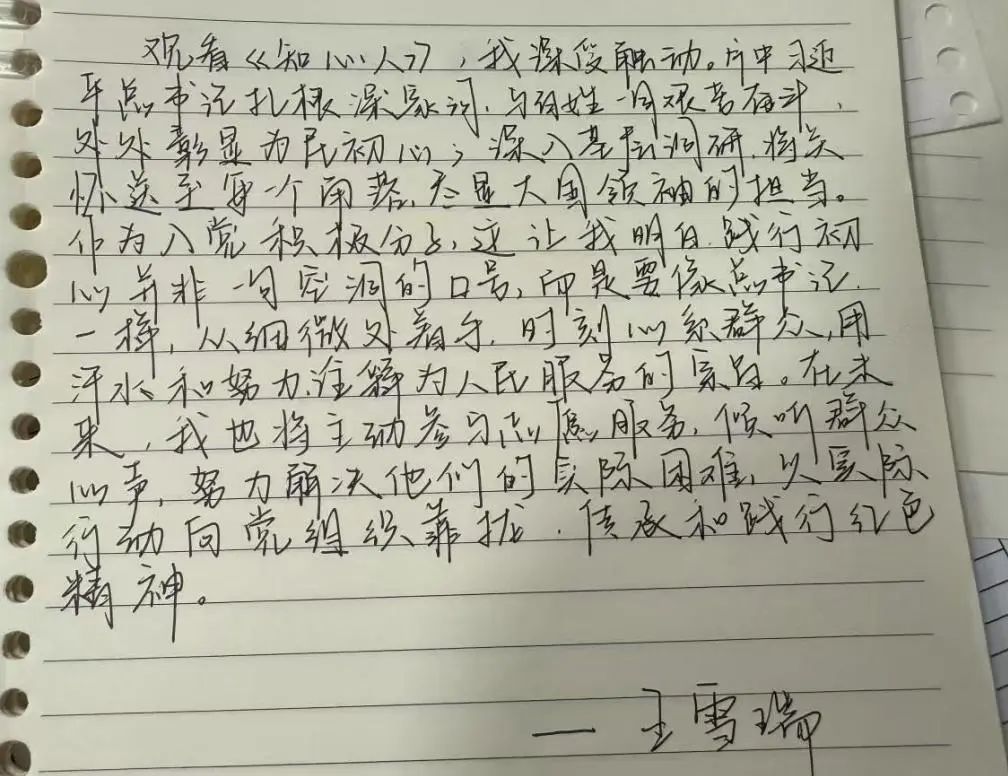 观看《知心人》，我深受触动。片中习近
平总书记扎根梁家河，与百姓一同艰苦奋斗，
处处彰显为民初心；深入基层调研，将关
怀送至每一个角落，尽显大国领袖的担当。
作为入党积极分子，这让我明白，践行初
心并非一句空洞的口号，而是要像总书记
一样，从细微处着手，时刻心系群众，用
汗水和努力诠释为人民服务的
。在未
来，我也将主动参与志愿服务，倾听群众
心声，努力解决他们的实际困难，以实际
行动向党组织靠拢，传承和践行红色
精神。
— 王雪瑞